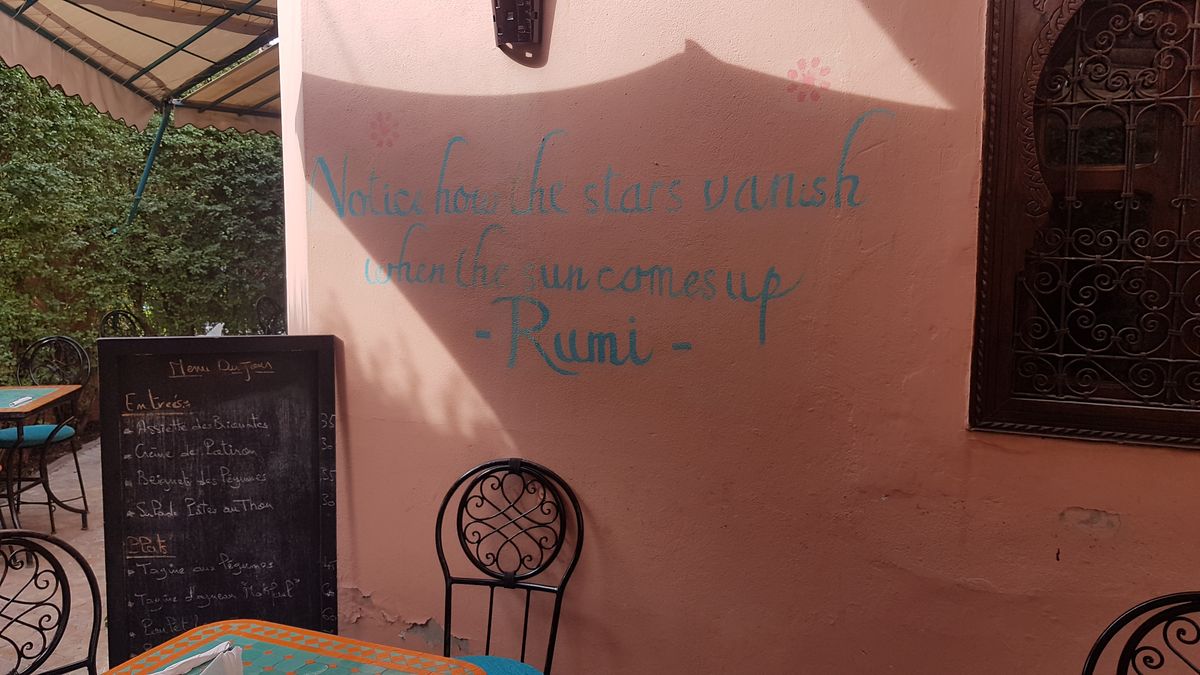 Notice how the stars vanish
when the sun comes up
- Rumi -
Menu Du Jour
Entrées
Assiette des Briouates 35
Crème de Potiron 30
Beignets des Légumes 35
Salade Pâtes au Thon 30
Plats
Tagine aux Légumes
Tagine d'agneau